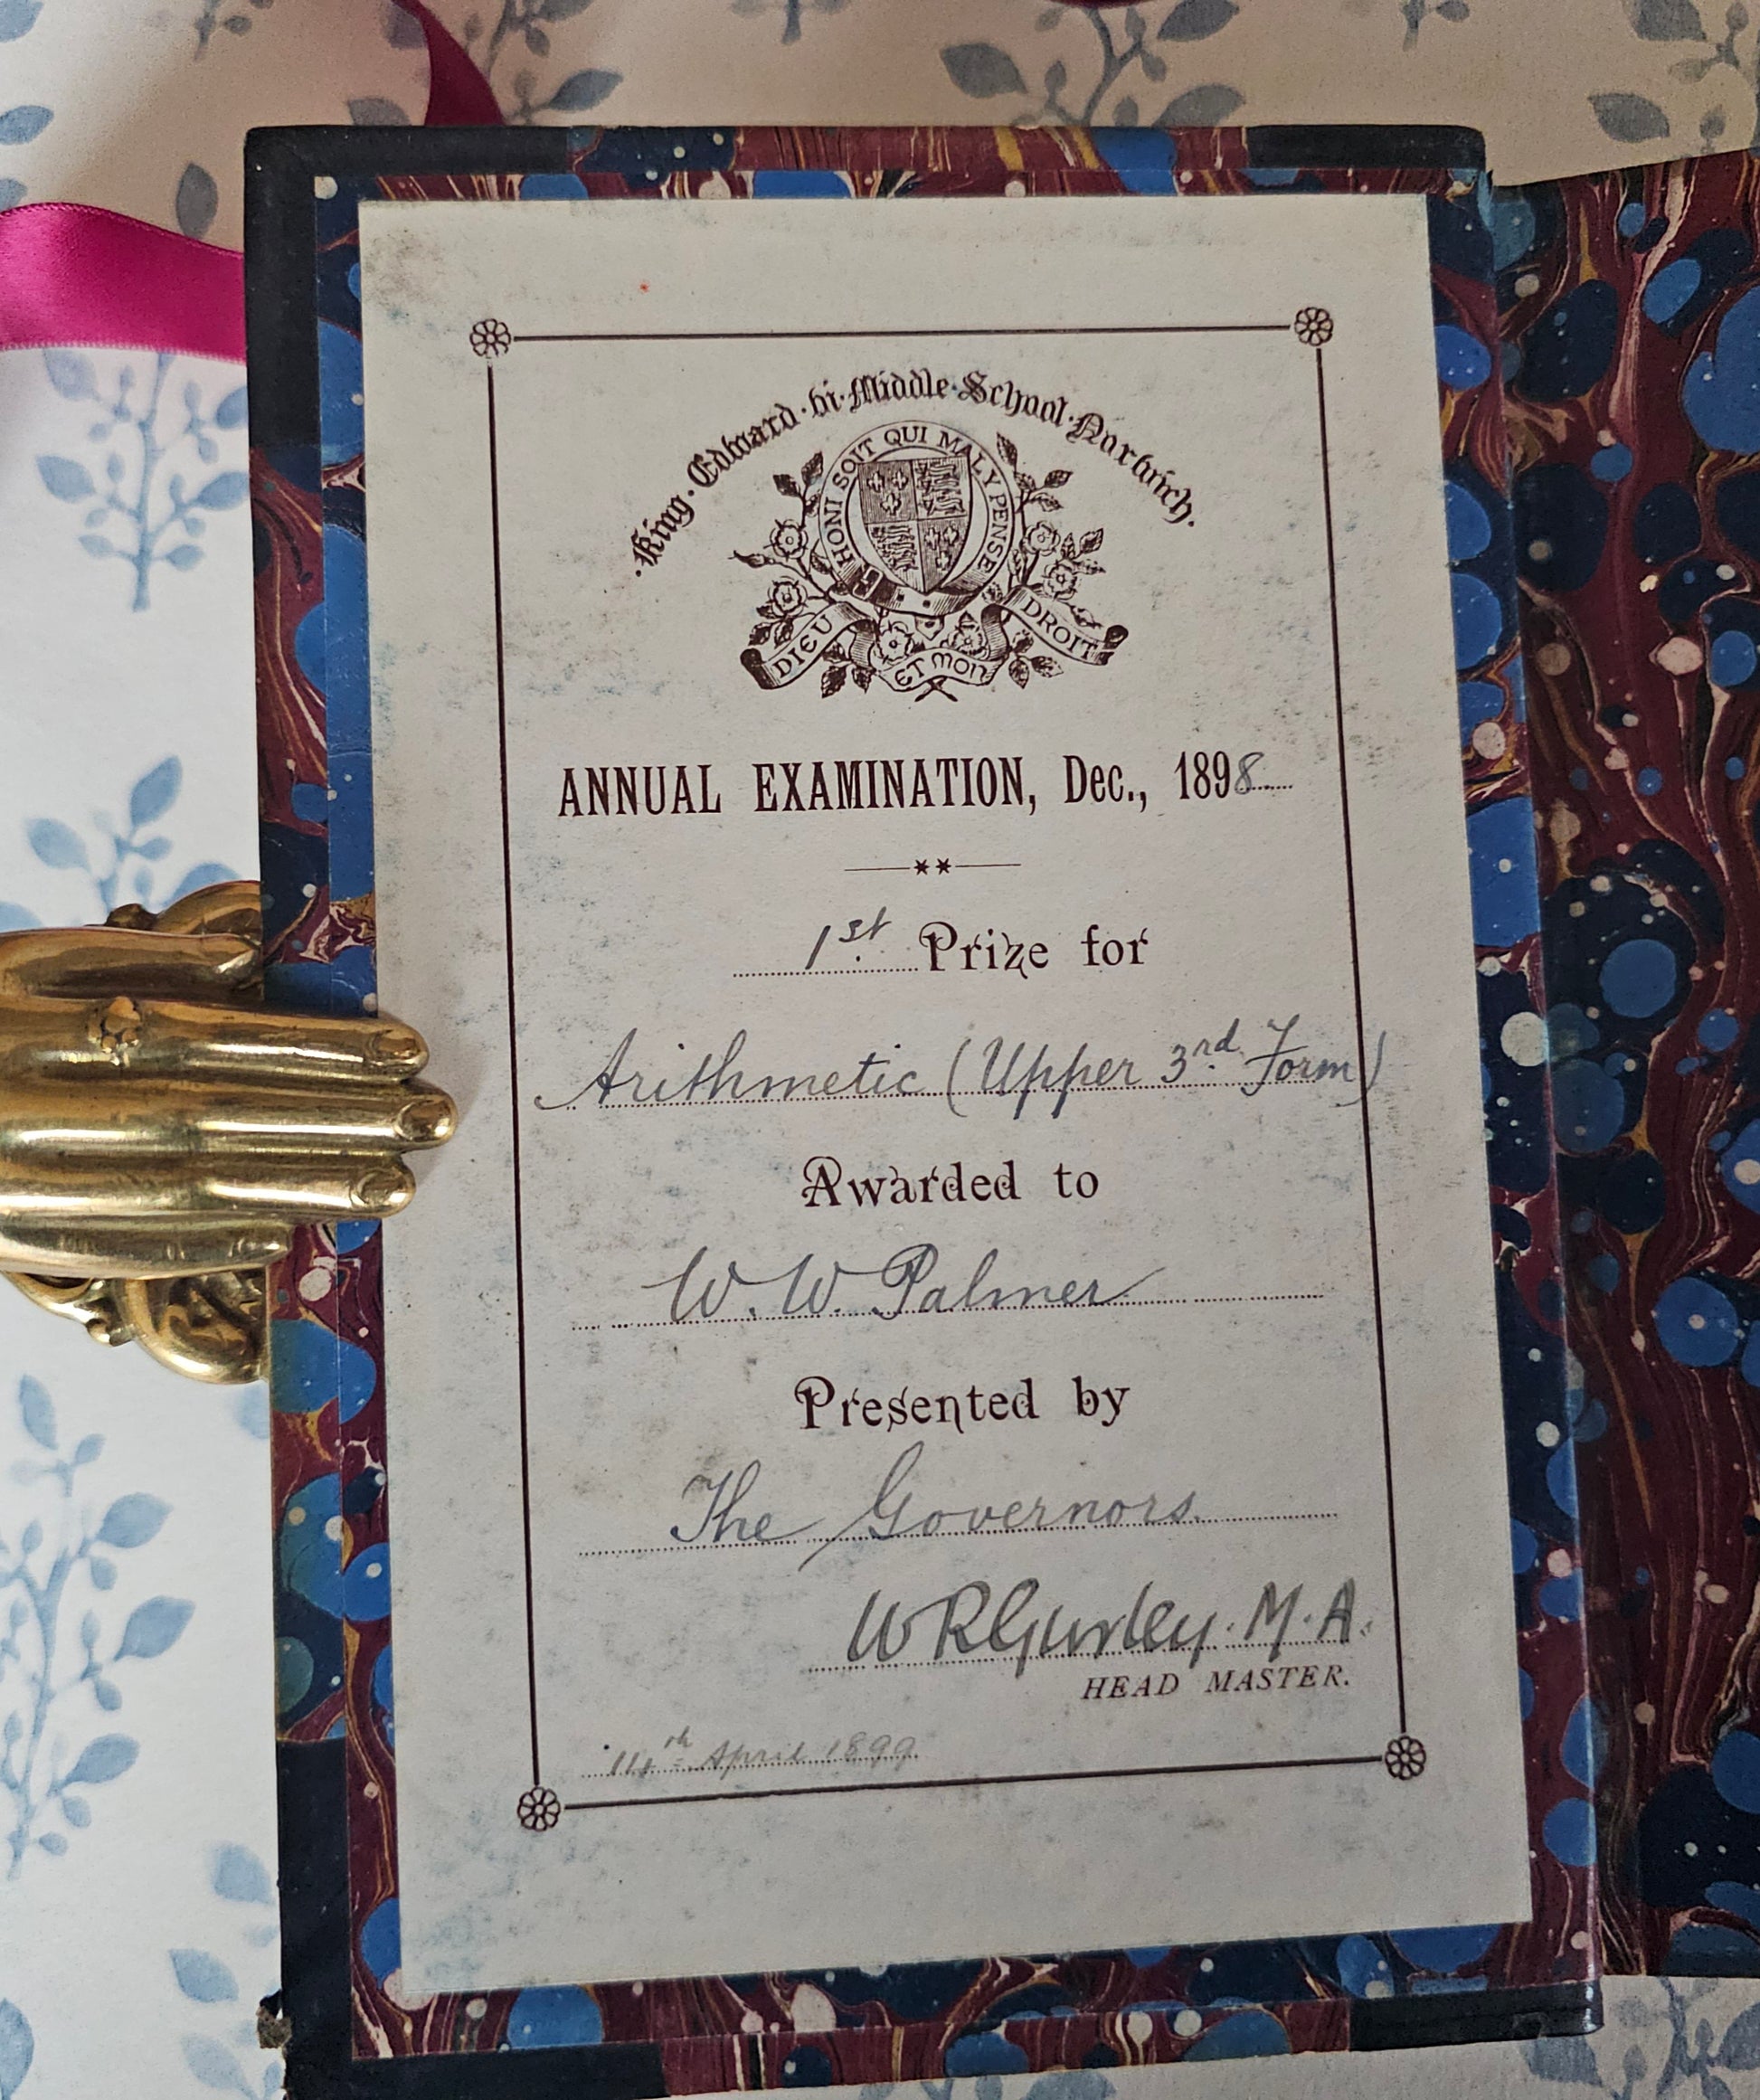 ·King·Edward·vi·Middle·School·Norwich.
HONI SOIT QUI MAL Y PENSE
DIEU ET MON DROIT
ANNUAL EXAMINATION, Dec., 1898
1st. Prize for
Arithmetic (Upper 3rd. Form)
Awarded to
W. W. Palmer
Presented by
The Governors.
W R Gurley. M. A.
HEAD MASTER.
14th April 1899.